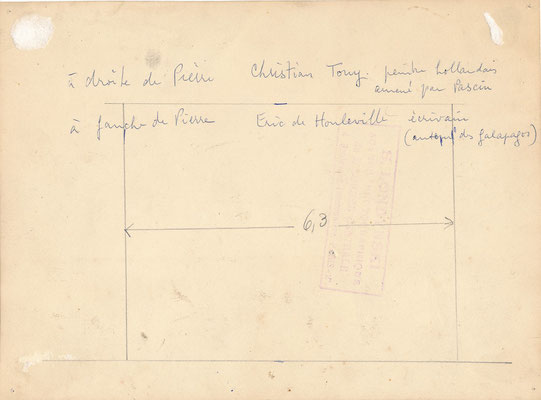 à droite de Pierre Christian Tony. peintre hollandais
amené par Pascin
à gauche de Pierre Eric de Houleville écrivain
(auteur des Galapagos)
6,3